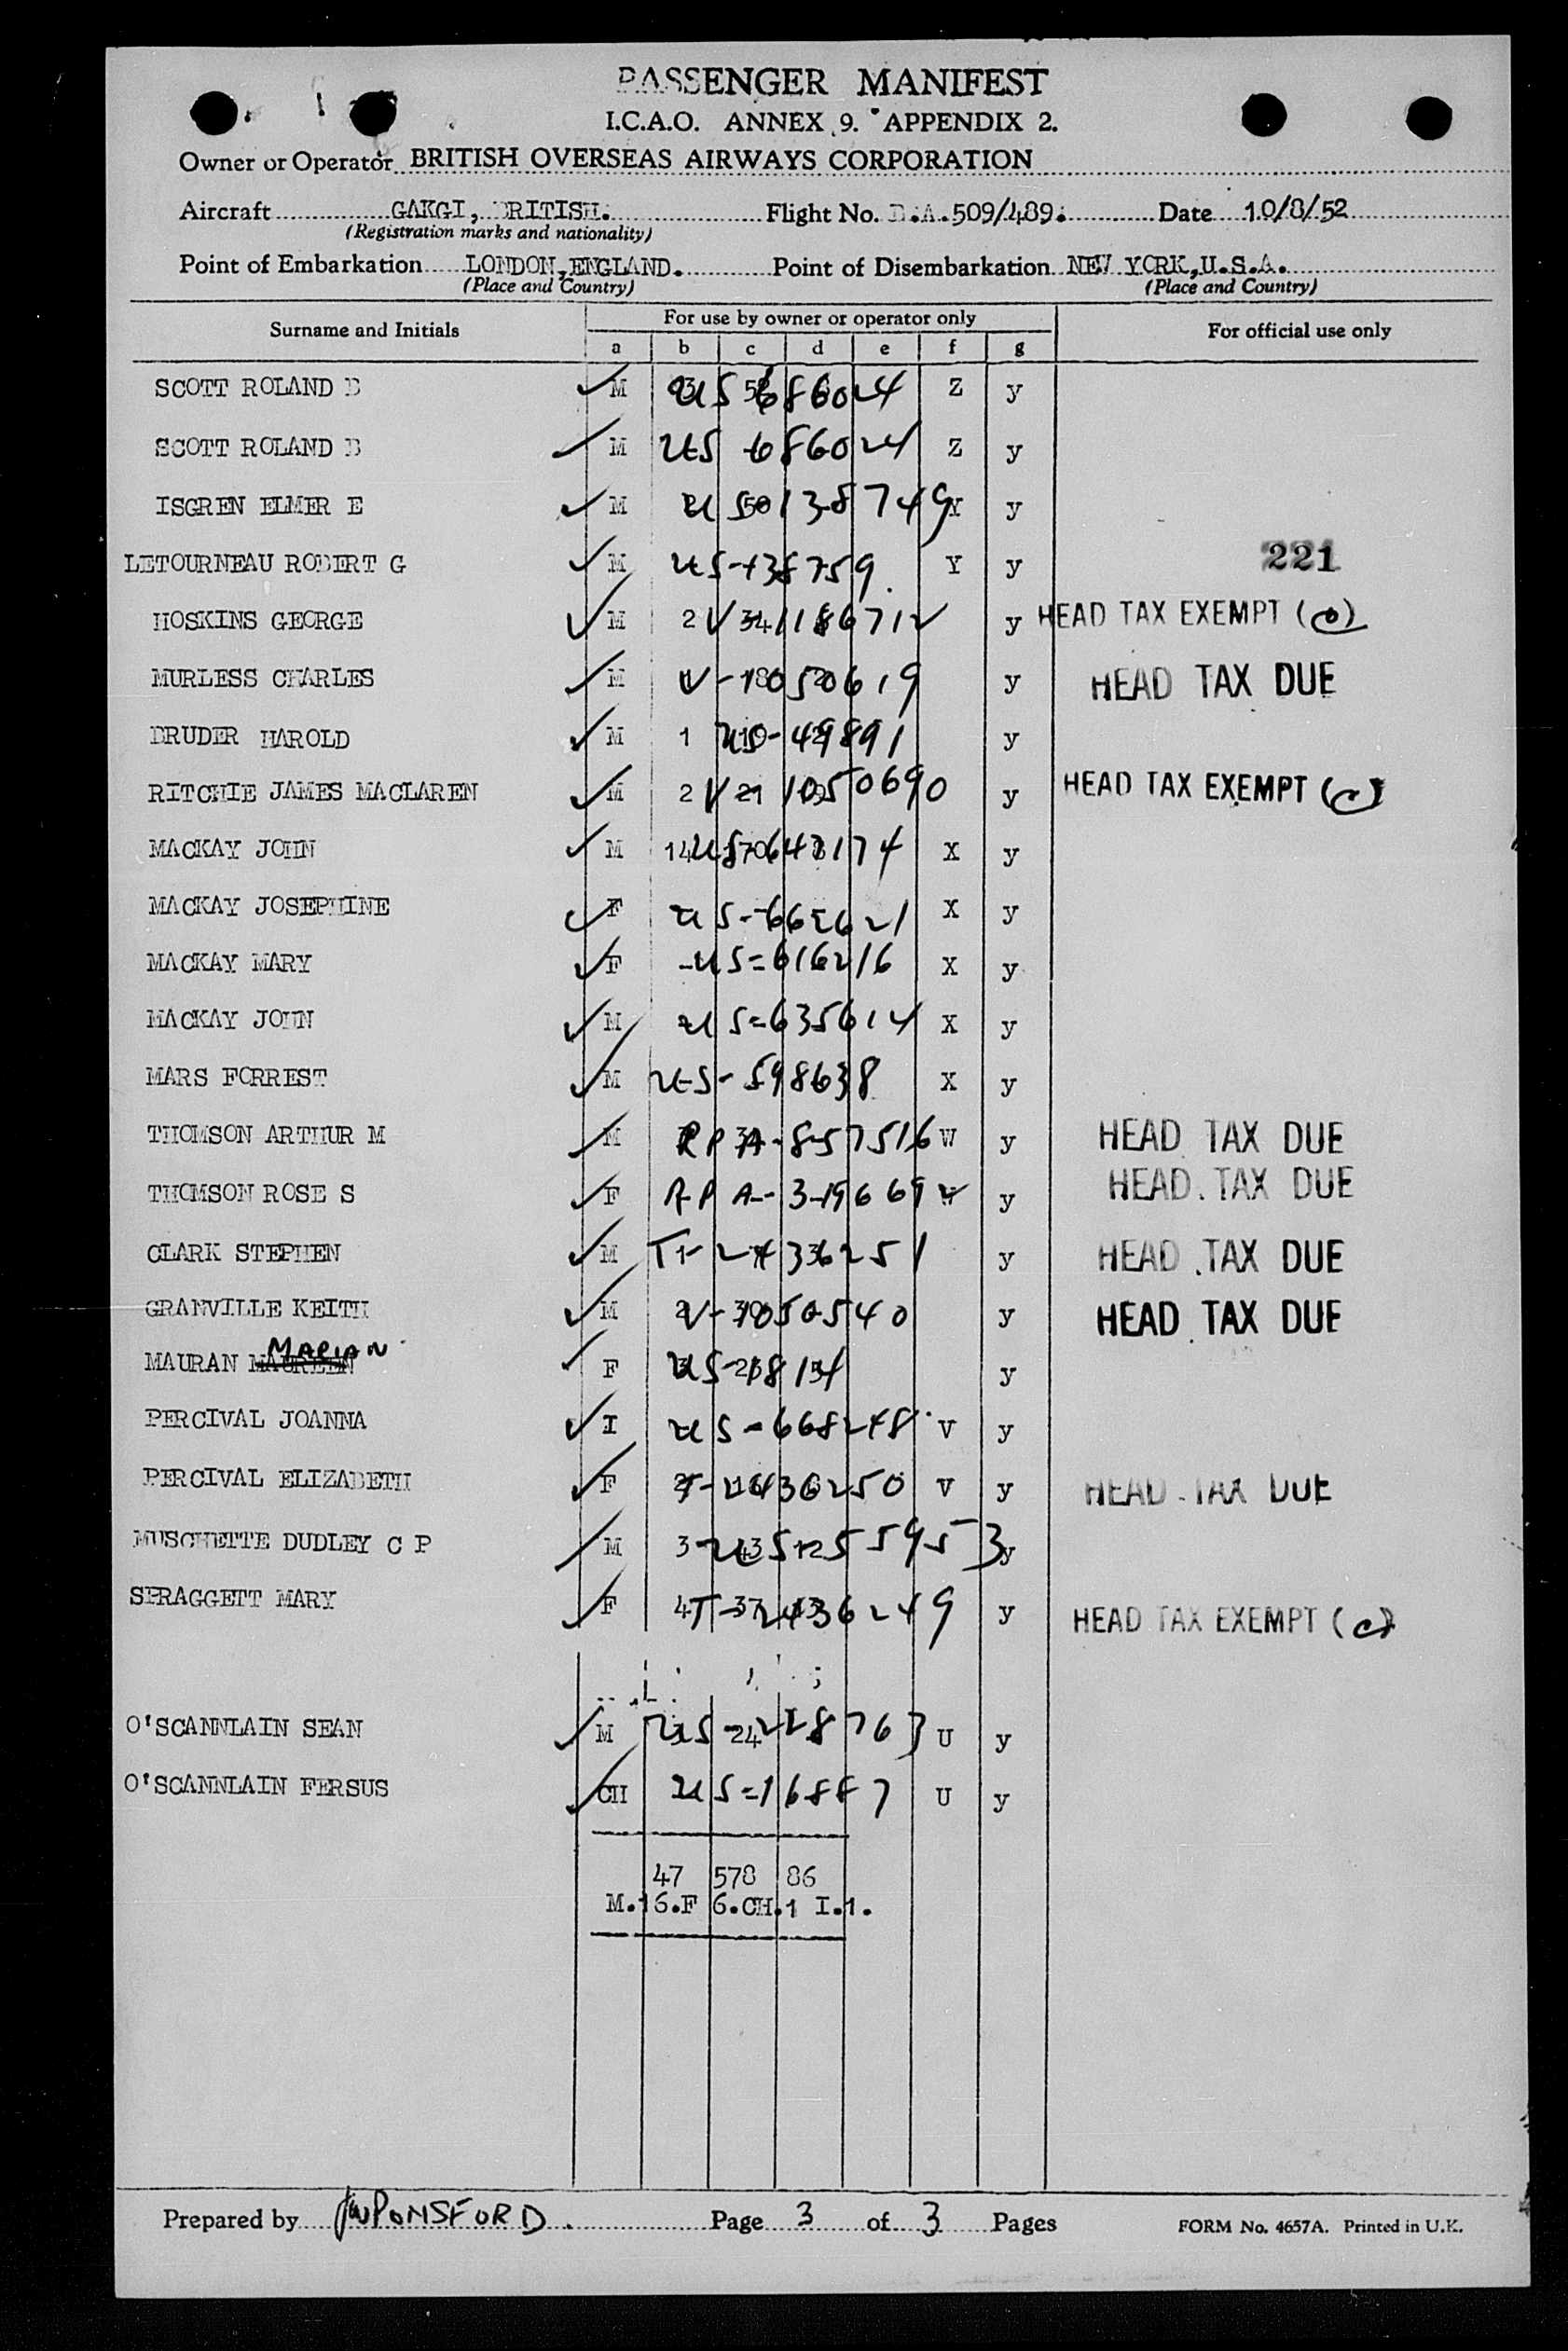 PASSENGER MANIFEST
I.C.A.O. ANNEX 9. APPENDIX 2.
Owner or Operator BRITISH OVERSEAS AIRWAYS CORPORATION
Aircraft GAKGI, BRITISH. Flight No. B.A.509/489. Date 10/8/52
(Registration marks and nationality)
Point of Embarkation LONDON, ENGLAND. Point of Disembarkation NEW YORK, U.S.A.
(Place and Country) (Place and Country)
Surname and Initials For use by owner or operator only For official use only
a b c d e f g
SCOTT ROLAND B M US 686024 Z y
SCOTT ROLAND B M US 686024 Z y
ISGREN ELMER E M y
221
LETOURNEAU ROBERT G M Y y
HOSKINS GEORGE M 2 y HEAD TAX EXEMPT (c)
MURLESS CHARLES M y HEAD TAX DUE
BRUDER HAROLD M 1 49891 y
RITCHIE JAMES MACLAREN M 2 V 1050690 y HEAD TAX EXEMPT (c)
MACKAY JOHN M 14 X y
MACKAY JOSEPHINE F X y
MACKAY MARY F US=616216 X y
MACKAY JOHN M US=635614 X y
MARS FORREST M US-598638 X y
THOMSON ARTHUR M M W y HEAD TAX DUE
THOMSON ROSE S F y HEAD TAX DUE
CLARK STEPHEN M y HEAD TAX DUE
GRANVILLE KEITH M V-1050540 y HEAD TAX DUE
MARIAN
MAURAN MAUREEN F y
PERCIVAL JOANNA I US-668248 V y
PERCIVAL ELIZABETH F V y HEAD TAX DUE
MUSCHETTE DUDLEY C P M 3 y
SPRAGGETT MARY F 4 y HEAD TAX EXEMPT (c)
O'SCANNLAIN SEAN M U y
O'SCANNLAIN FERSUS CH US=16887 U y
47 578 86
M.16.F 6.CH.1 I.1.
Prepared by JWPONSFORD. Page 3 of 3 Pages FORM No. 4657A. Printed in U.K.